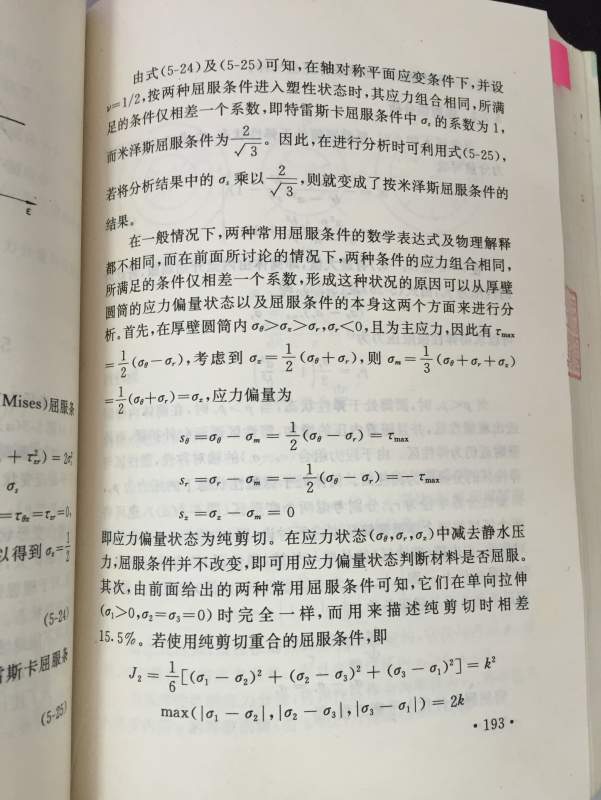 由式(5-24)及(5-25)可知,在轴对称平面应变条件下,并设
ν=1/2,按两种屈服条件进入塑性状态时,其应力组合相同,所满
足的条件仅相差一个系数,即特雷斯卡屈服条件中 σs 的系数为 1,
而米泽斯屈服条件为 2/√3 。因此,在进行分析时可利用式(5-25),
若将分析结果中的 σs 乘以 2/√3 ,则就变成了按米泽斯屈服条件的
结果。
在一般情况下,两种常用屈服条件的数学表达式及物理解释
都不相同,而在前面所讨论的情况下,两种条件的应力组合相同,
所满足的条件仅相差一个系数,形成这种状况的原因可以从厚壁
圆筒的应力偏量状态以及屈服条件的本身这两个方面来进行分
析。首先,在厚壁圆筒内 σθ>σz>σr,σr<0,且为主应力,因此有 τmax
=1/2(σθ-σr),考虑到 σz=1/2(σθ+σr),则 σm=1/3(σθ+σr+σz)
=1/2(σθ+σr)=σz,应力偏量为
sθ=σθ-σm=1/2(σθ-σr)=τmax
sr=σr-σm=-1/2(σθ-σr)=-τmax
sz=σz-σm=0
即应力偏量状态为纯剪切。在应力状态(σθ,σr,σz)中减去静水压
力,屈服条件并不改变,即可用应力偏量状态判断材料是否屈服。
其次,由前面给出的两种常用屈服条件可知,它们在单向拉伸
(σ1>0,σ2=σ3=0)时完全一样,而用来描述纯剪切时相差
15.5%。若使用纯剪切重合的屈服条件,即
J2=1/6[(σ1-σ2)²+(σ2-σ3)²+(σ3-σ1)²]=k²
max(|σ1-σ2|,|σ2-σ3|,|σ3-σ1|)=2k
·193·
ε
(Mises)屈服条
+τ²zr)=2σ²s
σs
=τθz=τzr=0,
以得到 σz=1/2
(5-24)
雷斯卡屈服条
(5-25)